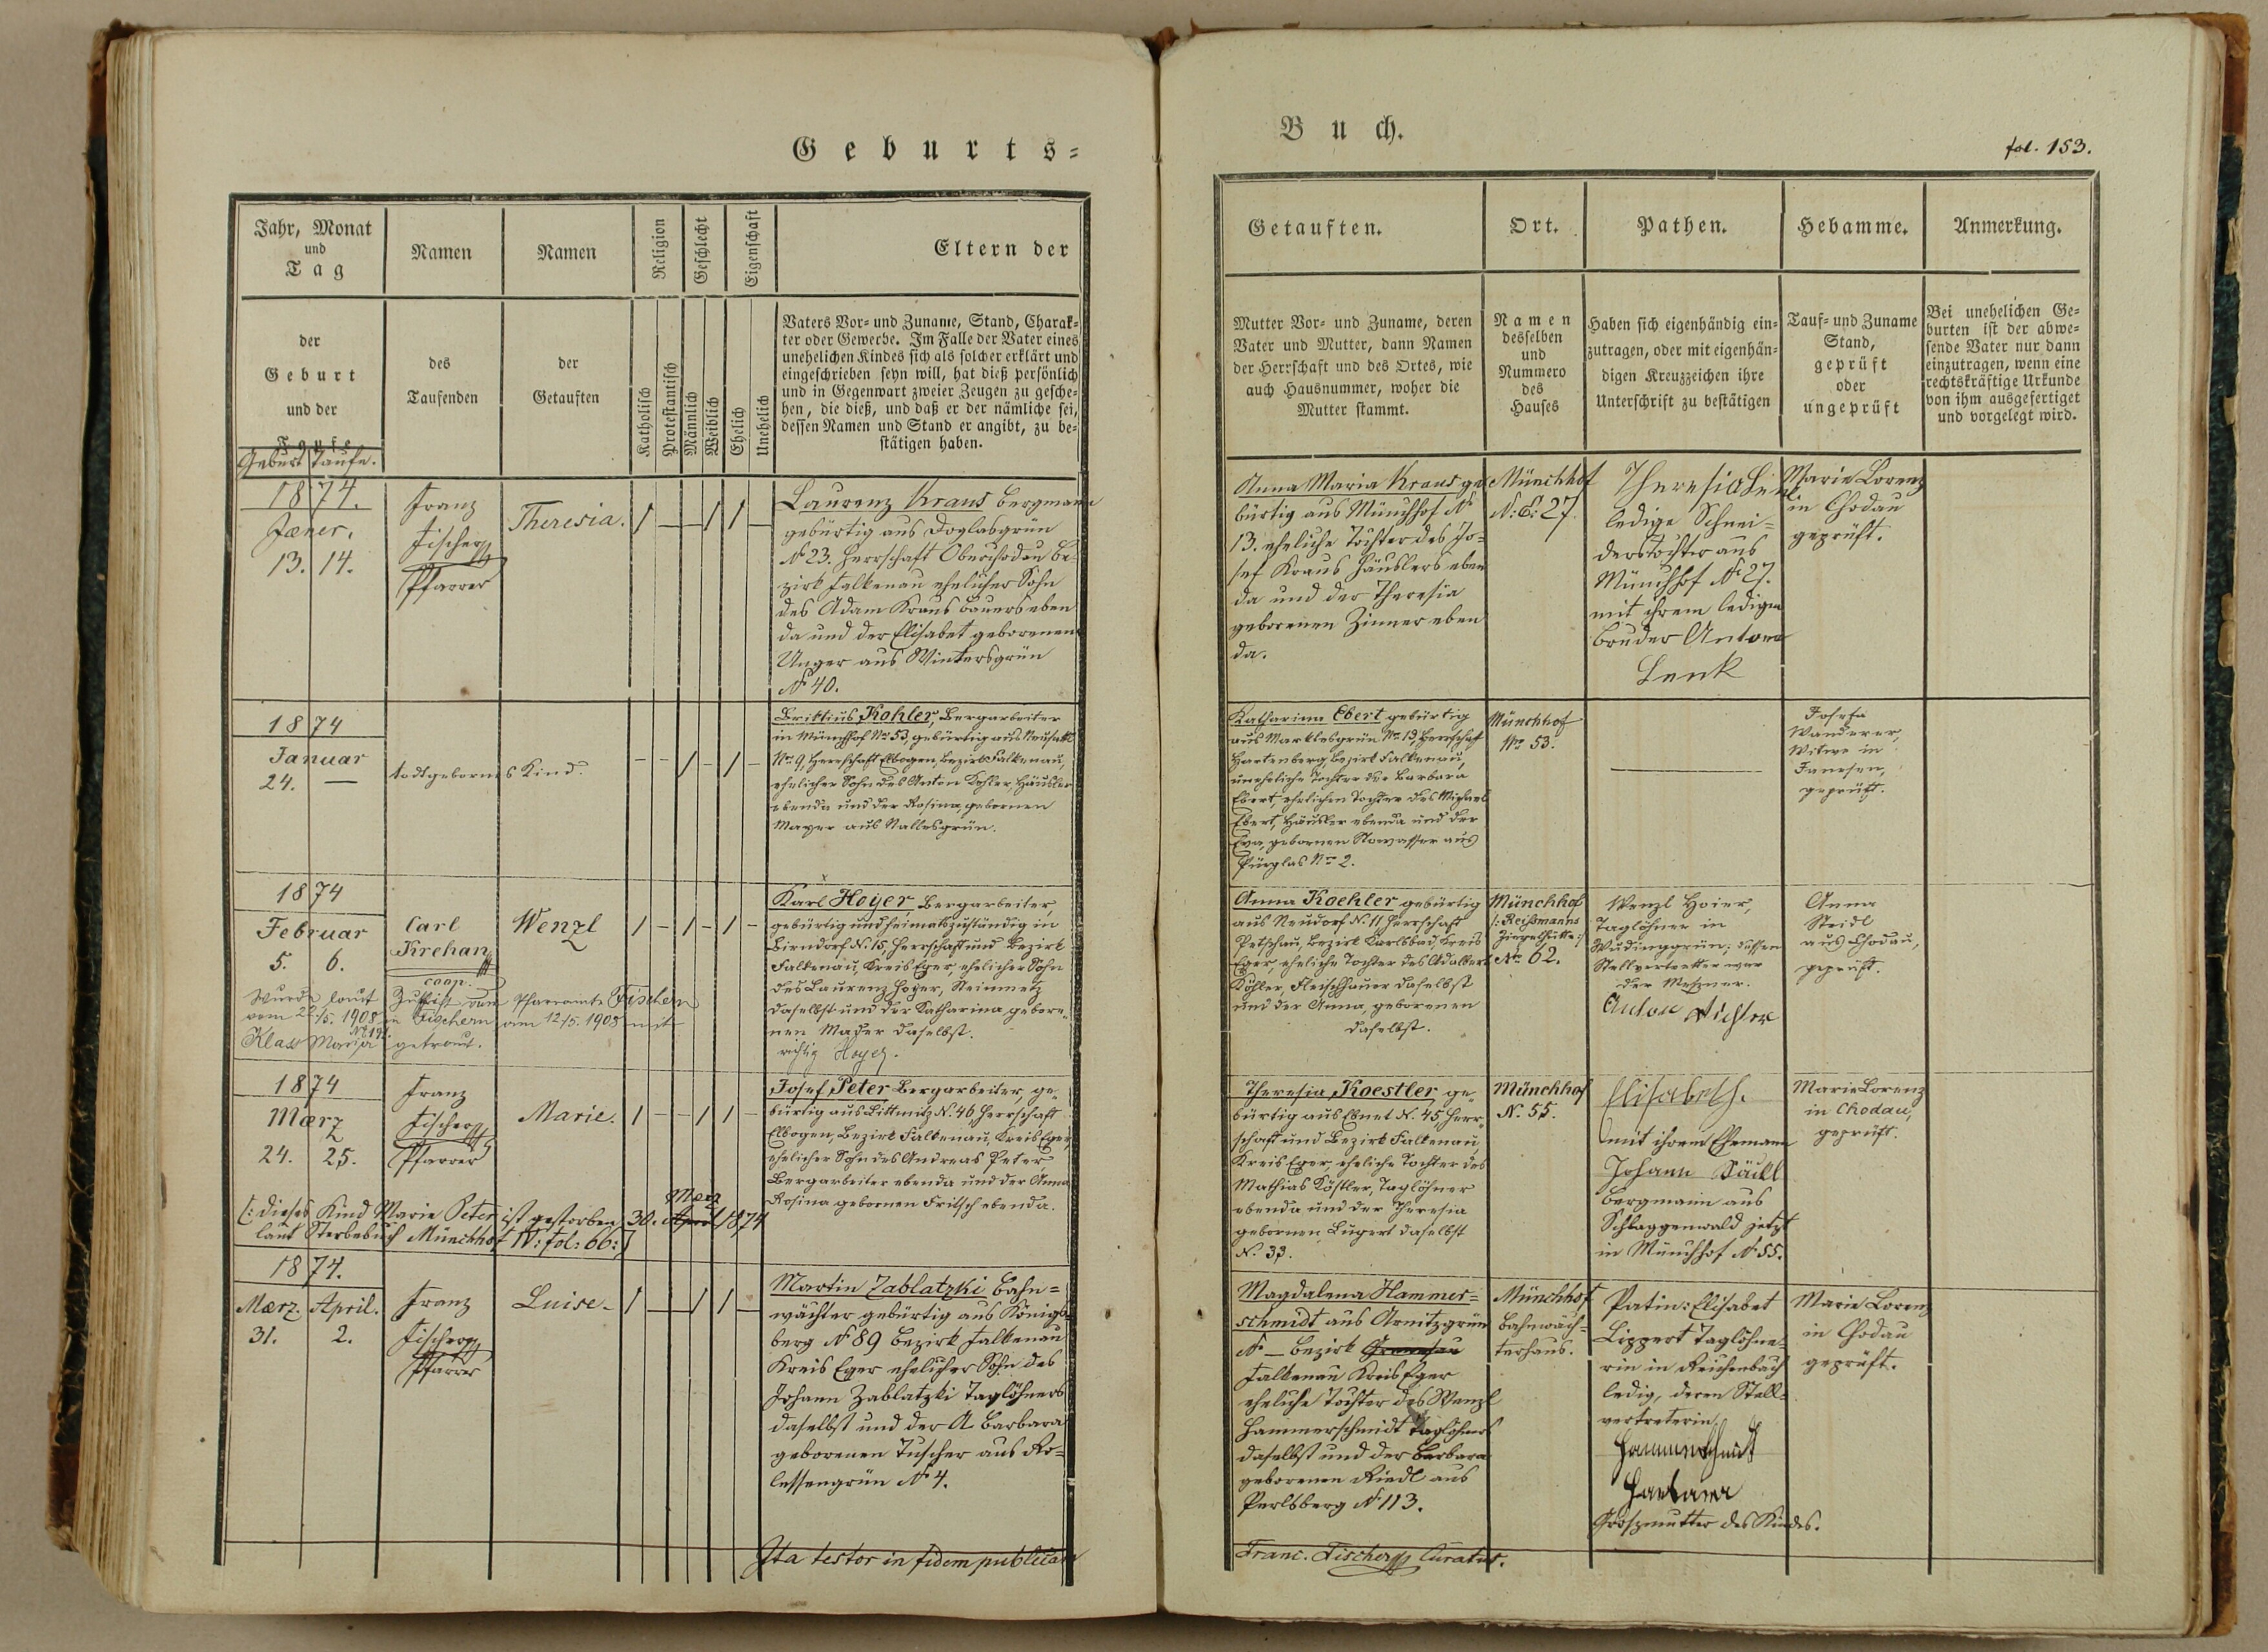 Geburts=
Jahr, Monat
und
Tag
Namen
Namen
Religion
Geschlecht
Eigenschaft
Eltern der
der
Geburt
und der
Taufe
Geburt Taufe.
des
Taufenden
der
Getauften
Katholisch
Protestantisch
Männlich
Weiblich
Ehelich
Unehelich
Vaters Vor= und Zuname, Stand, Charak=
ter oder Gewerbe. Im Falle der Vater eines
unehelichen Kindes sich als solcher erklärt und
eingeschrieben seyn will, hat dieß persönlich
und in Gegenwart zweier Zeugen zu gesche=
hen, die dieß, und daß er der nämliche sei,
dessen Namen und Stand er angibt, zu be=
stätigen haben.
1874.
Jæner.
13. 14.
Franz
Fischer
Pfarrer
Theresia.
Laurenz Kraus Bergmann
gebürtig aus Doglasgrün
N 23. Herrschaft Oberchodau Be=
zirk Falkenau ehelicher Sohn
des Adam Kraus Bauers eben
da und der Elisabet geborenen
Unger aus Wintersgrün
N 40.
1874
Januar
24. —
todtgebornes Kind.
Brittius Kohler, Bergarbeiter
in Münchhof No 53, gebürtig aus Neusattl
No 9, Herrschaft Elbogen, Bezirk Falkenau,
ehelicher Sohn des Anton Kohler, Häusler
ebenda und der Rosina, gebornen
Mayer aus Nallesgrün.
1874
Februar
5. 6.
Carl
Krehan
coop.
Wenzl
Karl Hoyer, Bergarbeiter,
gebürtig und heimatszuständig in
Birndorf N. 15, Herrschaft und Bezirk
Falkenau, Kreis Eger, ehelicher Sohn
des Laurenz Hoyer, Steinmetz
daselbst und der Katharina gebore=
nen Mader daselbst.
richtig Hoyer.
Wurde laut Zuschrift vom Pfarramte Fischern
vom 22/5. 1908 in Fischern am 12/5. 1908 mit
Klass Maria getraut.
1874
Mærz
24. 25.
Franz
Fischer
Pfarrer
Marie.
Josef Peter Bergarbeiter, ge=
bürtig aus Littmitz N. 46, Herrschaft
Elbogen, Bezirk Falkenau, Kreis Eger,
ehelicher Sohn des Andreas Peter,
Bergarbeiter ebenda und der Anna
Rosina gebornen Fritsch ebenda.
März
(: dieses Kind Marie Peter ist gestorben 30. April 1874
laut Sterbebuch Münchhof IV: fol: 66:)
1874.
Mærz. April.
31. 2.
Franz
Fischer
Pfarrer
Luise.
Martin Zablatzki Bahn=
wächter gebürtig aus Königs=
berg N 89 Bezirk Falkenau
Kreis Eger ehelicher Sohn des
Johann Zablatzki Taglöhners
daselbst und der A Barbara
geborenen Tuscher aus Ro=
lessengrün N 4.
Ita testor in fidem publicam
Buch.
fol. 153.
Getauften.
Ort.
Pathen.
Hebamme.
Anmerkung.
Mutter Vor= und Zuname, deren
Vater und Mutter, dann Namen
der Herrschaft und des Ortes, wie
auch Hausnummer, woher die
Mutter stammt.
Namen
desselben
und
Nummero
des
Hauses
Haben sich eigenhändig ein=
zutragen, oder mit eigenhän=
digen Kreuzzeichen ihre
Unterschrift zu bestätigen
Tauf= und Zuname
Stand,
geprüft
oder
ungeprüft
Bei unehelichen Ge=
burten ist der abwe=
sende Vater nur dann
einzutragen, wenn eine
rechtskräftige Urkunde
von ihm ausgefertiget
und vorgelegt wird.
Anna Maria Kraus ge
bürtig aus Münchhof N
13. eheliche Tochter des Jo=
sef Kraus Häuslers eben
da und der Theresia
geborenen Zinner eben
da.
Münchhof
N: C: 27.
Theresia Lenk
ledige Schnei=
derstochter aus
Münchhof N 27.
mit ihrem ledigen
Bruder Anton
Lenk
Marie Lorenz
in Chodau
geprüft.
Katharina Ebert gebürtig
aus Marklesgrün No 19, Herrschaft
Hartenberg, Bezirk Falkenau,
uneheliche Tochter der Barbara
Ebert, ehelichen Tochter des Michael
Ebert, Häusler ebenda und der
Eva, gebornen Nowasser aus
Pürglas No 2.
Münchhof
No 53.
Josefa
Wanderer,
Witwe in
Janesen,
geprüft.
Anna Koehler gebürtig
aus Neudorf N. 11 Herrschaft
Petschau, Bezirk Karlsbad, Kreis
Eger, eheliche Tochter des Adalbert
Köhler, Fleischhauer daselbst
und der Anna, geborenen
daselbst.
Münchhof
/: Reißmanns
Ziegelhütte :/
No 62.
Wenzl Hoier,
Taglöhner in
Wudinggrün; dessen
Stellvertretter war
der Meßner.
Anton Richter
Anna
Steidl
aus Chodau,
geprüft.
Theresia Koestler, ge=
bürtig aus Ebmet N. 45, Herr=
schaft und Bezirk Falkenau,
Kreis Eger, eheliche Tochter des
Mathias Köstler, Taglöhner
ebenda und der Theresia
gebornen Lugert daselbst
N. 33.
Münchhof
N. 55.
Elisabeth.
mit ihrem Ehemann
Johann
Bergmann aus
Schlaggenwald jetzt
in Münchhof N 55.
Marie Lorenz
in Chodau,
geprüft.
Magdalena Hammer=
schmidt aus Arnitzgrün
N — Bezirk
Falkenau Kreis Eger
eheliche Tochter des Wenzl
Hammerschmidt Taglöhners
daselbst und der Barbara
geborenen Riedl aus
Perlsberg N 113.
Münchhof
Bahnwäch=
terhaus.
Patin: Elisabet
Lippert Taglöhne=
rin in Reichenbach
ledig, deren Stell=
vertreterin
Hammerschmidt
Barbara
Großmutter des Kindes.
Marie Lorenz
in Chodau
geprüft.
Franc. Fischer Curatus.